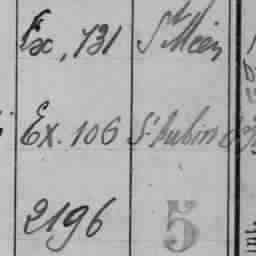 Ex, 731 St Méen
Ex. 106 St Aubin d'
2196 5
int.